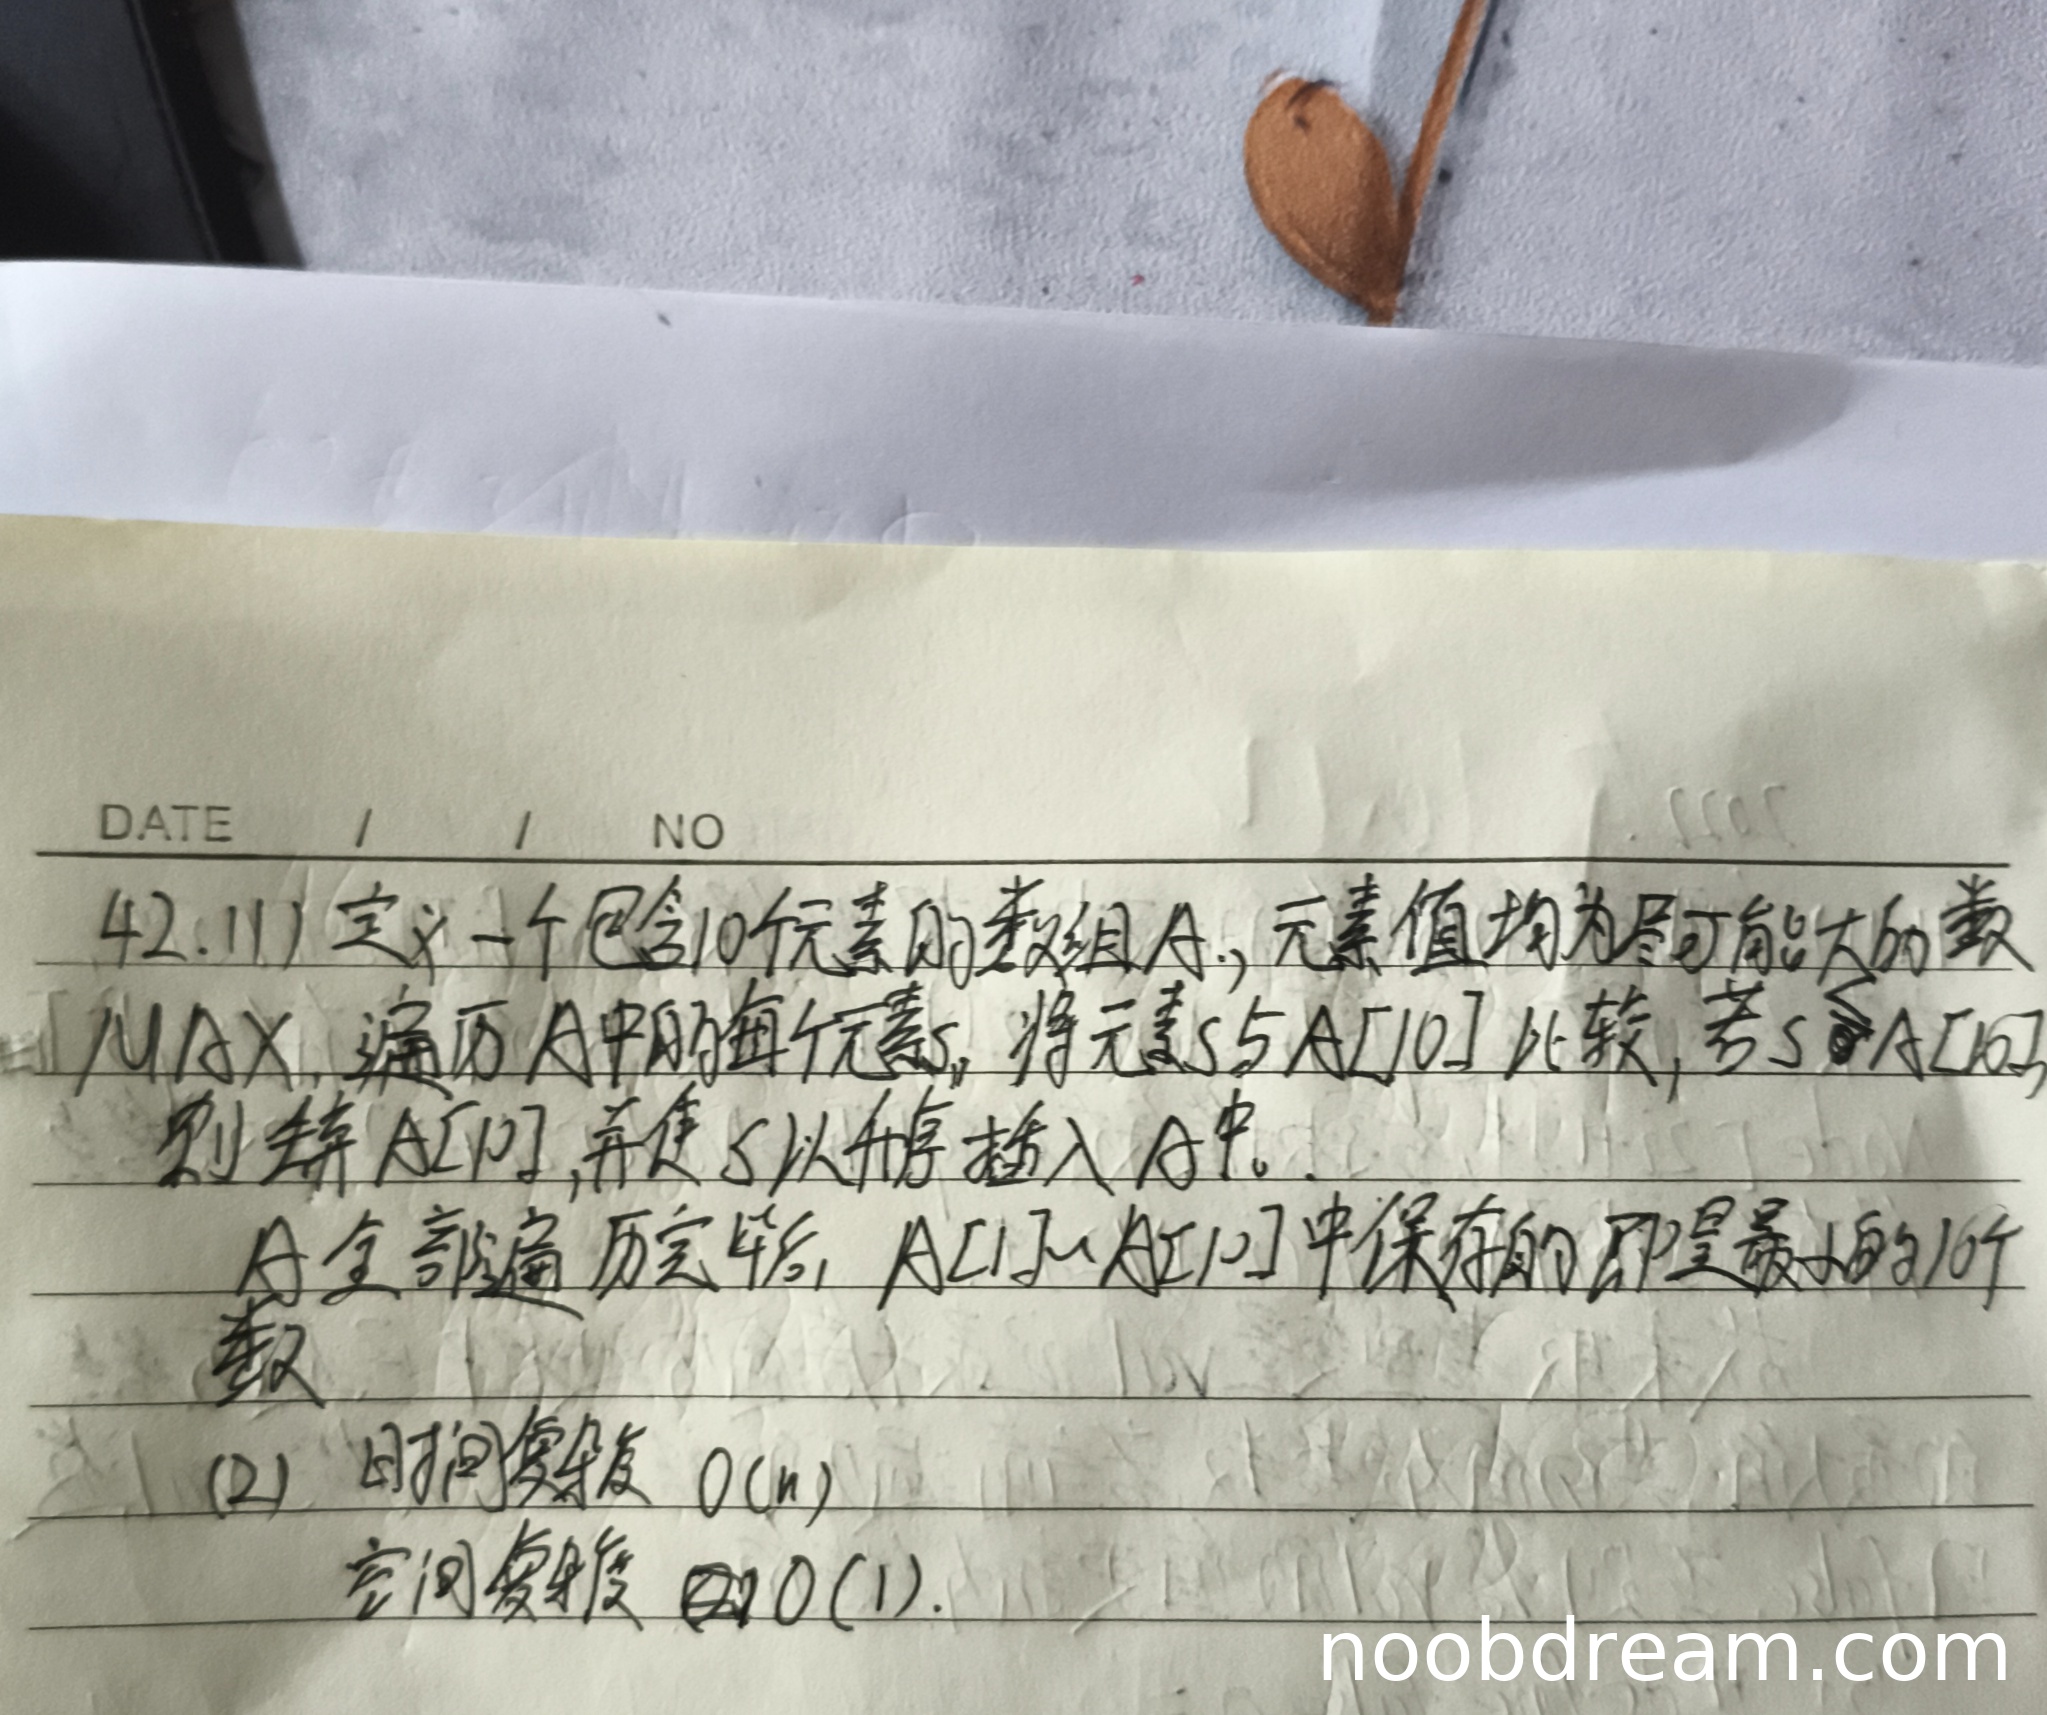 DATE / / NO
42.(1) 定义一个包含10个元素的数组A.,元素值均为尽可能大的数
MAX,遍历A中的每个元素s,将元素s与A[10]比较,若s<A[10],
则丢弃A[10],并使s以升序插入A中。.
A全部遍历完毕后,A[1]~A[10]中保存的即是最小的10个
数
(2) 时间复杂度 O(n)
空间复杂度 O(1).
noobdream.com